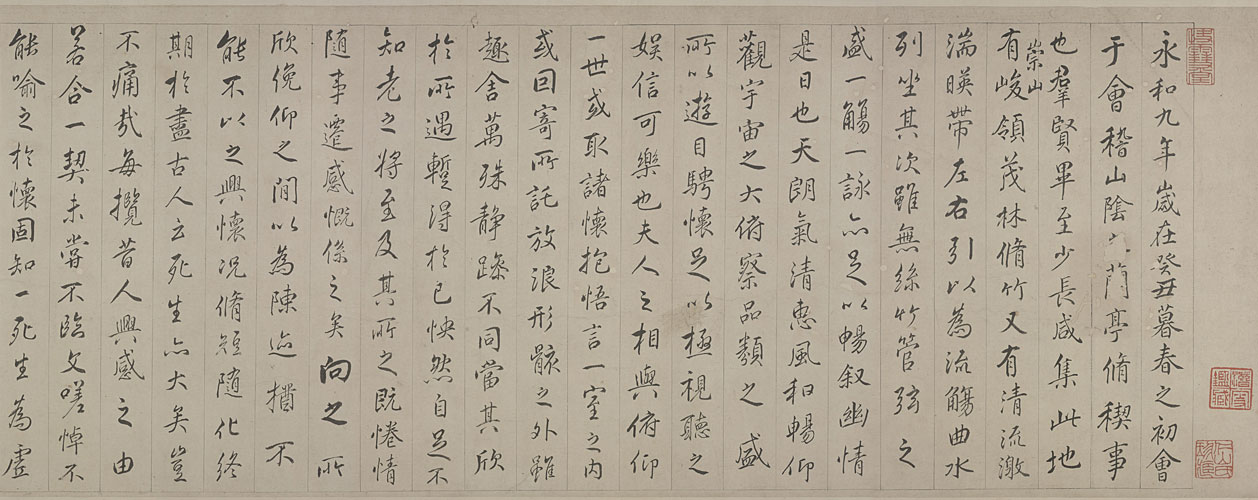 永和九年歲在癸丑暮春之初會
于會稽山陰之蘭亭脩稧事
也羣賢畢至少長咸集此地
有崇山峻領茂林脩竹又有清流激
湍暎帶左右引以為流觴曲水
列坐其次雖無絲竹管弦之
盛一觴一詠亦足以暢叙幽情
是日也天朗氣清惠風和暢仰
觀宇宙之大俯察品類之盛
所以遊目騁懷足以極視聽之
娛信可樂也夫人之相與俯仰
一世或取諸懷抱悟言一室之內
或因寄所託放浪形骸之外雖
趣舍萬殊静躁不同當其欣
於所遇蹔得於己怏然自足不
知老之將至及其所之既惓情
隨事遷感慨係之矣向之所
欣俛仰之閒以為陳迹猶不
能不以之興懷況脩短隨化終
期於盡古人云死生亦大矣豈
不痛哉每攬昔人興感之由
若合一契未嘗不臨文嗟悼不
能喻之於懷固知一死生為虛